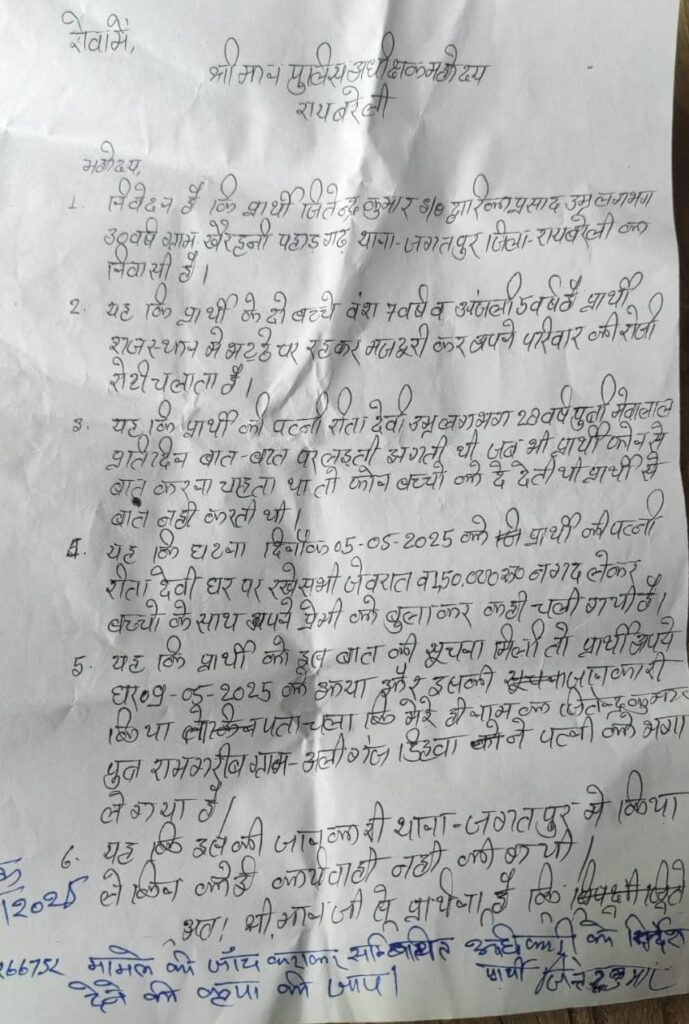 सेवामें,
श्रीमान पुलिस अधीक्षक महोदय
रायबरेली
महोदय,
1. निवेदन है कि प्रार्थी जितेन्द्र कुमार S/o द्वारिका प्रसाद उम्र लगभग
30 वर्ष ग्राम खैरहनी पहाड़गढ़ थाना-जगतपुर जिला-रायबरेली का
निवासी है।
2. यह कि प्रार्थी के दो बच्चे वंश 7 वर्ष व अंजली 5 वर्ष है प्रार्थी
राजस्थान मे भट्ठे पर रहकर मजदूरी कर अपने परिवार की रोजी
रोटी चलाता है।
3. यह कि प्रार्थी की पत्नी रीता देवी उम्र लगभग 28 वर्ष पुत्री मेवालाल
प्रतिदिन बात-बात पर लड़ती झगती थी जब भी प्रार्थी फोन से
बात करना चाहता था तो फोन बच्चो को दे देती थी प्रार्थी से
बात नही करती थी।
4. यह कि घटना दिनाँक 05-05-2025 को प्रार्थी की पत्नी
रीता देवी घर पर रखे सभी जेवरात व 150,000 रू0 नगद लेकर
बच्चो के साथ अपने प्रेमी को बुलाकर कही चली गयी है।
5. यह कि प्रार्थी को इस बात की सूचना मिली तो प्रार्थी अपने
घर 09-05-2025 को आया और इसकी जानकारी
किया लेकिन पता चला कि मेरे ही नाम का जितेन्द्र कुमार
पुत्र रामगरीब ग्राम-अलीगंज डिहवा ने पत्नी को भगा
ले गया है।
6. यह कि इसकी जानकारी थाना-जगतपुर मे किया
लेकिन कोई कार्यवाही नही की गयी।
2025
अतः श्रीमान जी से प्रार्थना है कि
266752 मामले की जाँच कराकर सम्बिधित अधिकारी को निर्देश
देने की कृपा की जाय। प्रार्थी जितेन्द्र कुमार